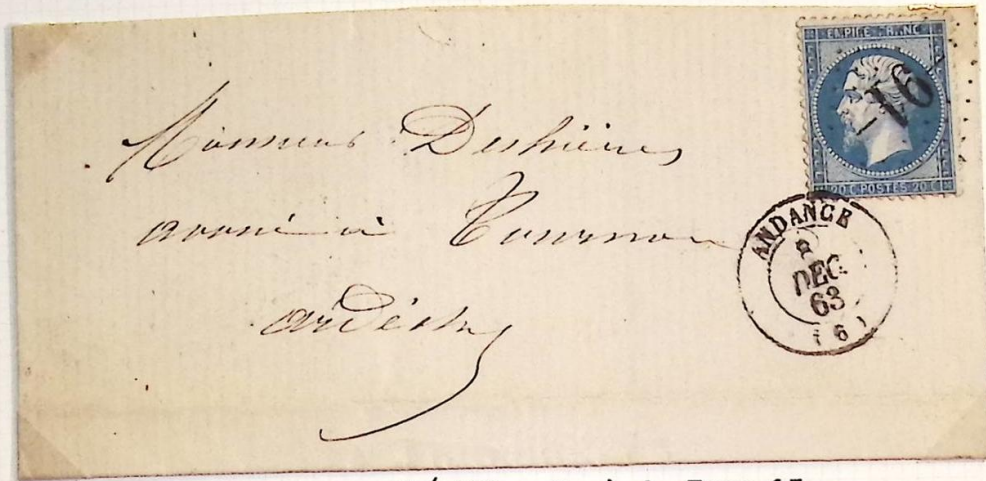 EMPIRE FRANC
16
20 C POSTES 20 C
Monsieur Deshières
avoué à Tournon
ardèche
ANDANCE
8
DEC
63
(6)